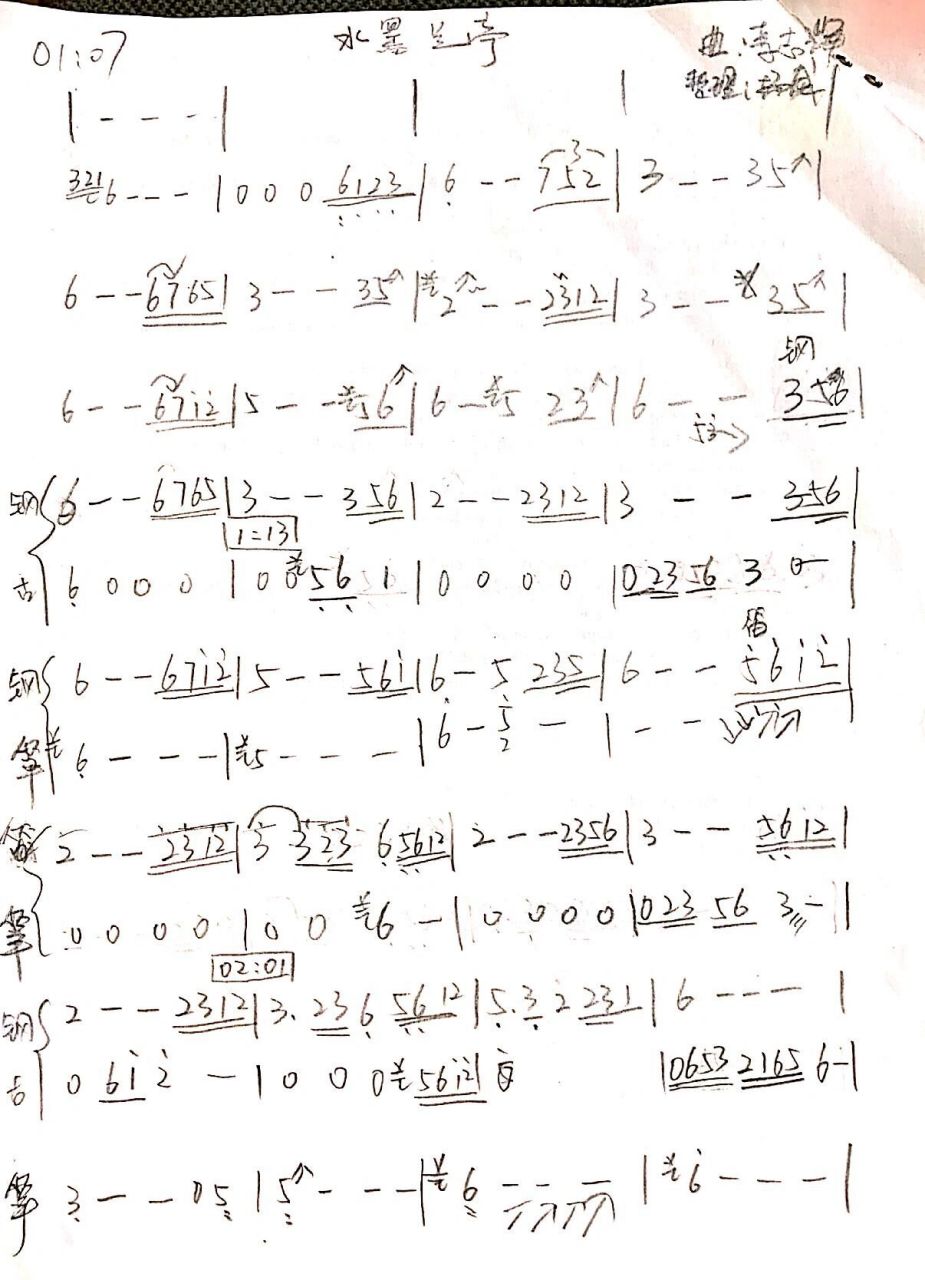 01:07 水墨兰亭 曲:李志辉
整理:
| - - - - | | | |
3216 - - - | 0 0 0 6123 | 6 - - 752 | 3 - - 35 |
6 - - 6765 | 3 - - 35 | 2 - - 2312 | 3 - - 35 |
钢
6 - - 67i2 | 5 - - 56 | 6 - 5 23 | 6 - - 356 |
53
钢 6 - - 6765 | 3 - - 356 | 2 - - 2312 | 3 - - 356 |
1=131
古 6 0 0 0 | 0 0 56 1 | 0 0 0 0 | 023 56 3 0 - |
笛
钢 6 - - 67i2 | 5 - - 56i | 6 - 5 235 | 6 - - 56i2 |
筝 6 - - - | 5 - - - | 6 - 5/2 - | - -
笛 2 - - 2312 | 3 323 6 5612 | 2 - - 2356 | 3 - - 5612 |
筝 0 0 0 0 | 0 0 6 - | 0 0 0 0 | 023 56 3 - |
02:01
钢 2 - - 2312 | 3. 23 6 5612 | 5. 3 2 231 | 6 - - - |
古 0 6i 2 - | 0 0 0 56i2 | | 0653 2165 6 - |
筝 3 - - 05 | 5 - - - | 6 - - - | 6 - - - |